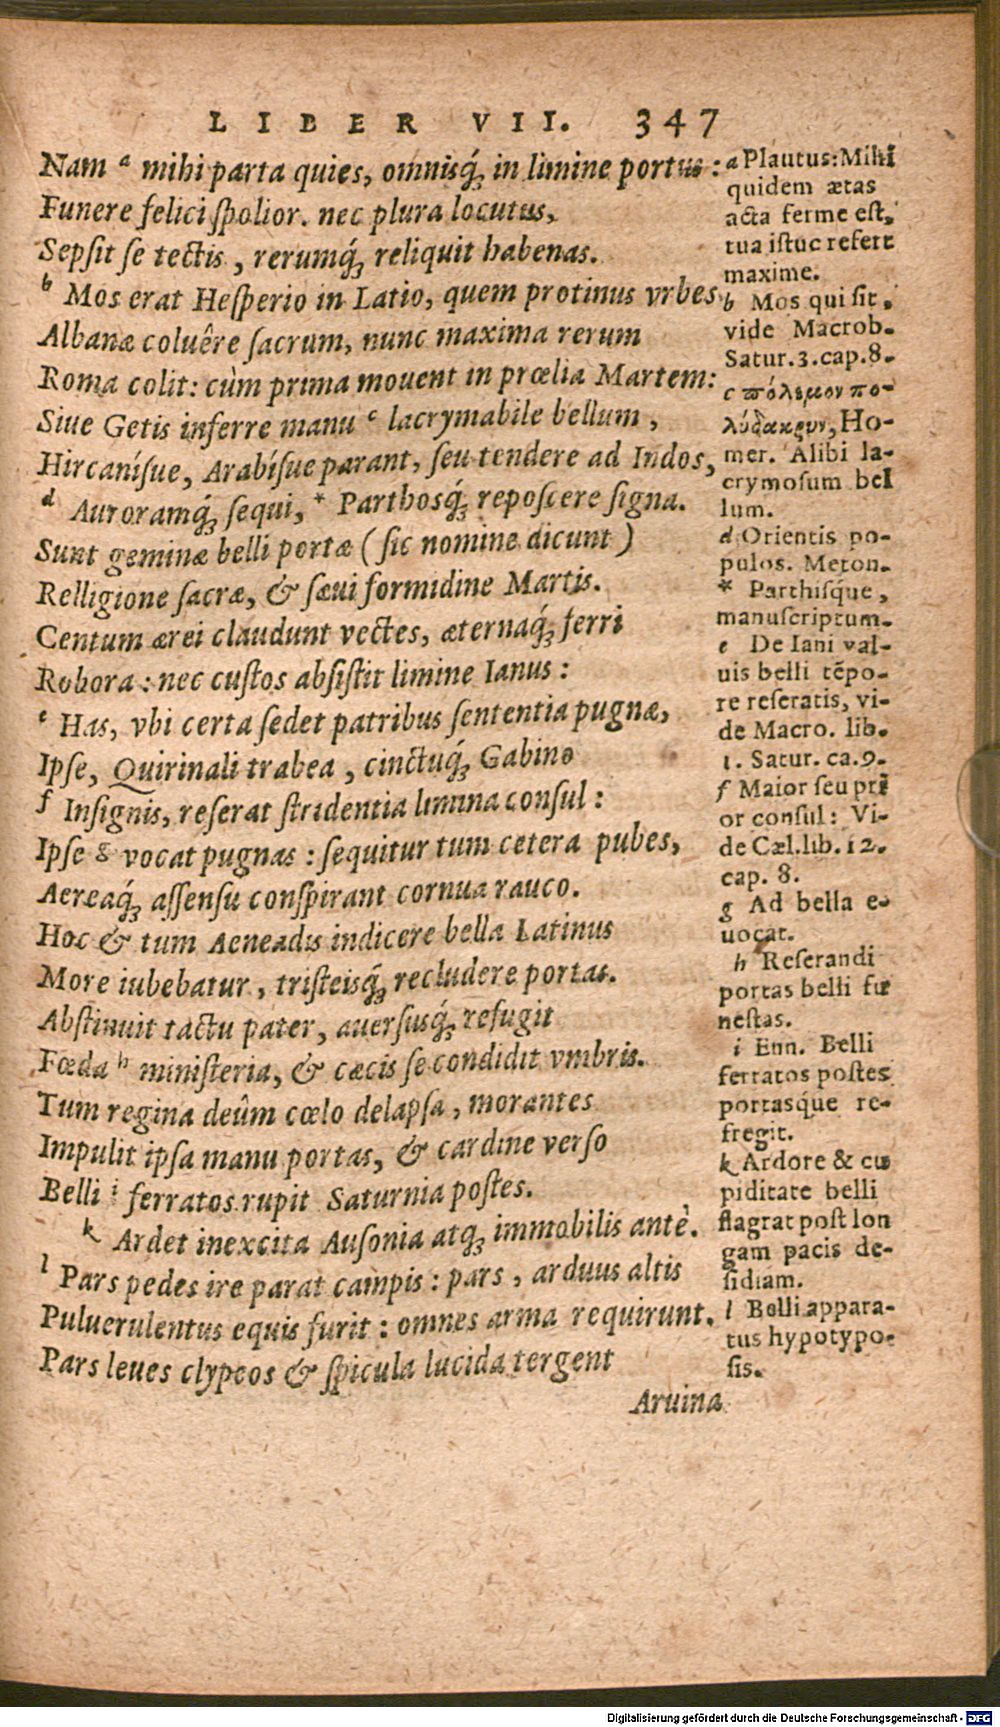 LIBER VII. 347
Nam a mihi parta quies, omnisq́; in limine portus :
Funere felici spolior. nec plura locutus,
Sepsit se tectis, rerumq́; reliquit habenas.
b Mos erat Hesperio in Latio, quem protinus vrbes
Albanæ coluêre sacrum, nunc maxima rerum
Roma colit: cùm prima mouent in prœlia Martem:
Siue Getis inferre manu c lacrymabile bellum,
Hircanísue, Arabísue parant, seu tendere ad Indos,
d Auroramq́; sequi, * Parthosq́; reposcere signa.
Sunt geminæ belli portæ (sic nomine dicunt)
Relligione sacræ, & sæui formidine Martis.
Centum ærei claudunt vectes, æternaq́; ferri
Robora : nec custos absistit limine Ianus :
e Has, vbi certa sedet patribus sententia pugnæ,
Ipse, Quirinali trabea, cinctuq́; Gabino
f Insignis, reserat stridentia limina consul :
Ipse g vocat pugnas : sequitur tum cetera pubes,
Aereaq́; assensu conspirant cornua rauco.
Hoc & tum Aeneadis indicere bella Latinus
More iubebatur, tristeisq́; recludere portas.
Abstinuit tactu pater, auersusq́; refugit
Fœda h ministeria, & cæcis se condidit vmbris.
Tum regina deûm cœlo delapsa, morantes
Impulit ipsa manu portas, & cardine verso
Belli i ferratos rupit Saturnia postes.
k Ardet inexcita Ausonia atq; immobilis antè.
l Pars pedes ire parat campis : pars, arduus altis
Puluerulentus equis furit : omnes arma requirunt.
Pars leues clypeos & spicula lucida tergent
Aruina
a Plautus: Mihi
quidem ætas
acta ferme est,
tua istuc refert
maxime.
b Mos qui sit,
vide Macrob.
Satur.3.cap.8.
c πόλεμον πο-
λύδακρυν, Ho-
mer. Alibi la-
crymosum bel
lum.
d Orientis po-
pulos. Meton.
* Parthisq́ue,
manuscriptum.
e De Iani val-
uis belli tēpo-
re reseratis, vi-
de Macro. lib.
1. Satur. ca.9.
f Maior seu pri
or consul: Vi-
de Cæl.lib.12.
cap. 8.
g Ad bella e-
uocat.
h Reserandi
portas belli fu
nestas.
i Enn. Belli
ferratos postes
portasq́ue re-
fregit.
k Ardore & cu
piditate belli
flagrat post lon
gam pacis de-
sidiam.
l Belli appara-
tus hypotypo-
sis.
Digitalisierung gefördert durch die Deutsche Forschungsgemeinschaft - DFG